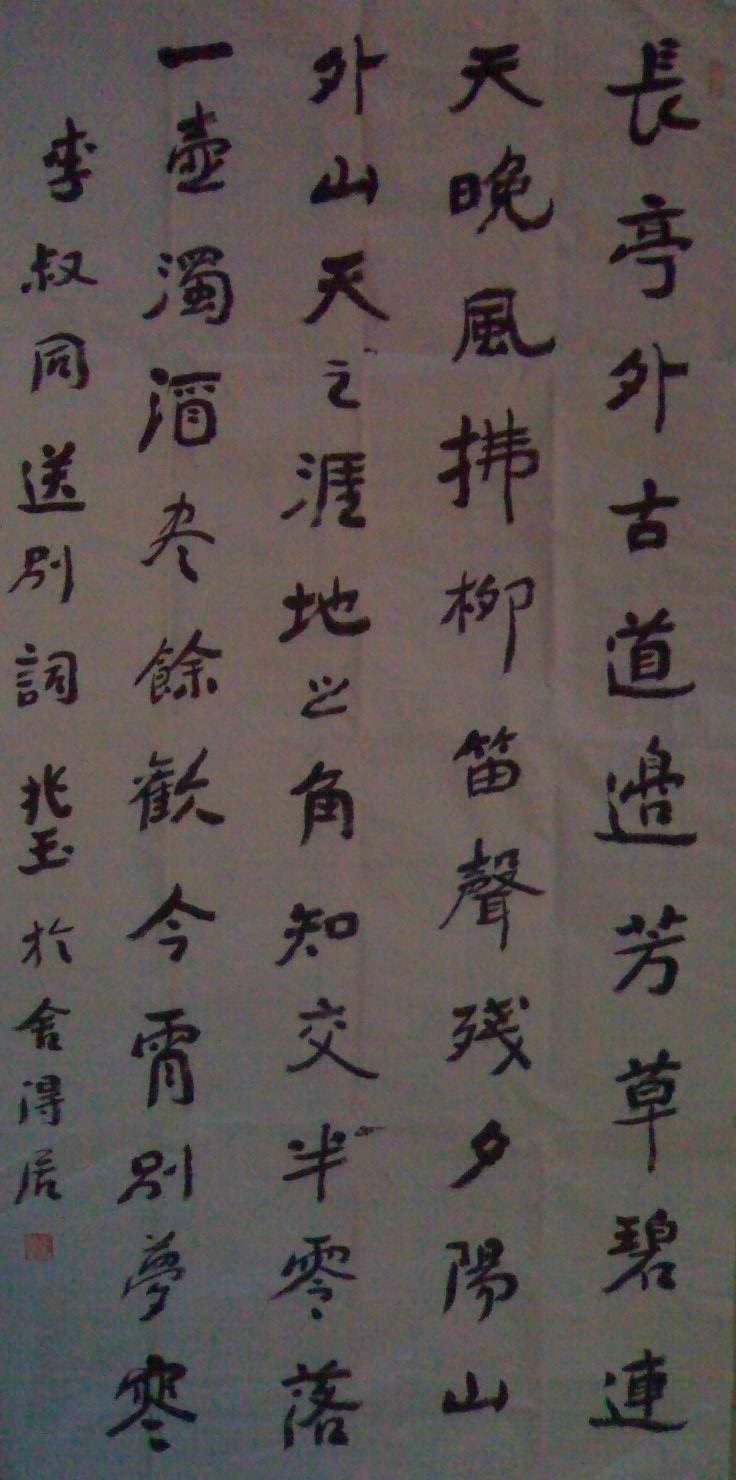 長亭外古道邉芳草碧連
天晚風拂柳笛聲残夕陽山
外山天之涯地之角知交半零落
一壺濁酒尽餘歡今宵別夢寒
李叔同送别詞 兆玉於舍得居